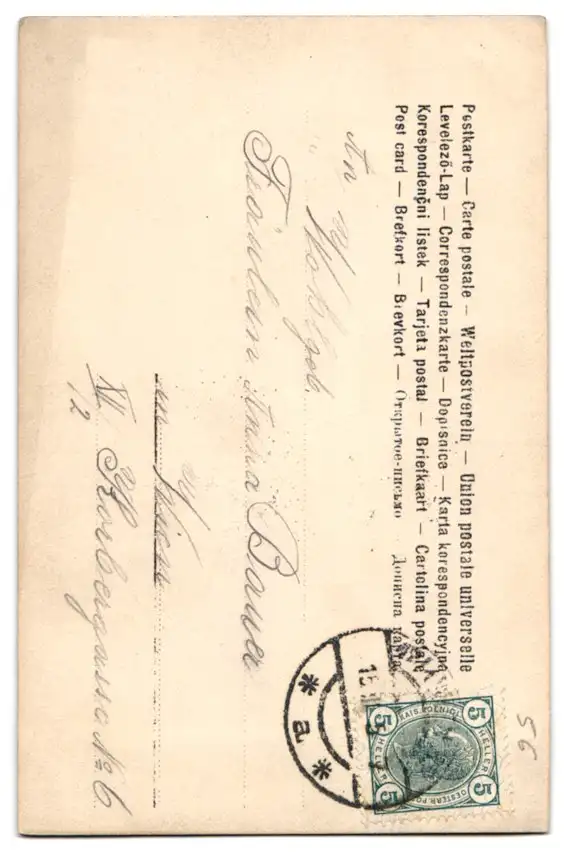 Postkarte — Carte postale — Weltpostverein — Union postale universelle
Levelező-Lap — Correspondenzkarte — Dopisnice — Karta korespondencyjna
Korespondenční listek — Tarjeta postal — Briefkaart — Cartolina postale
Post card — Brefkort — Brevkort — Открытое-письмо Дописна карта
An
Wohlgeb.
Fräulein Anna Bauer
in Wien
XII.
12
No 6
56
5 5
5 5
HELLER HELLER
KAIS. KOENIGL.
OESTERR. POST
* a *